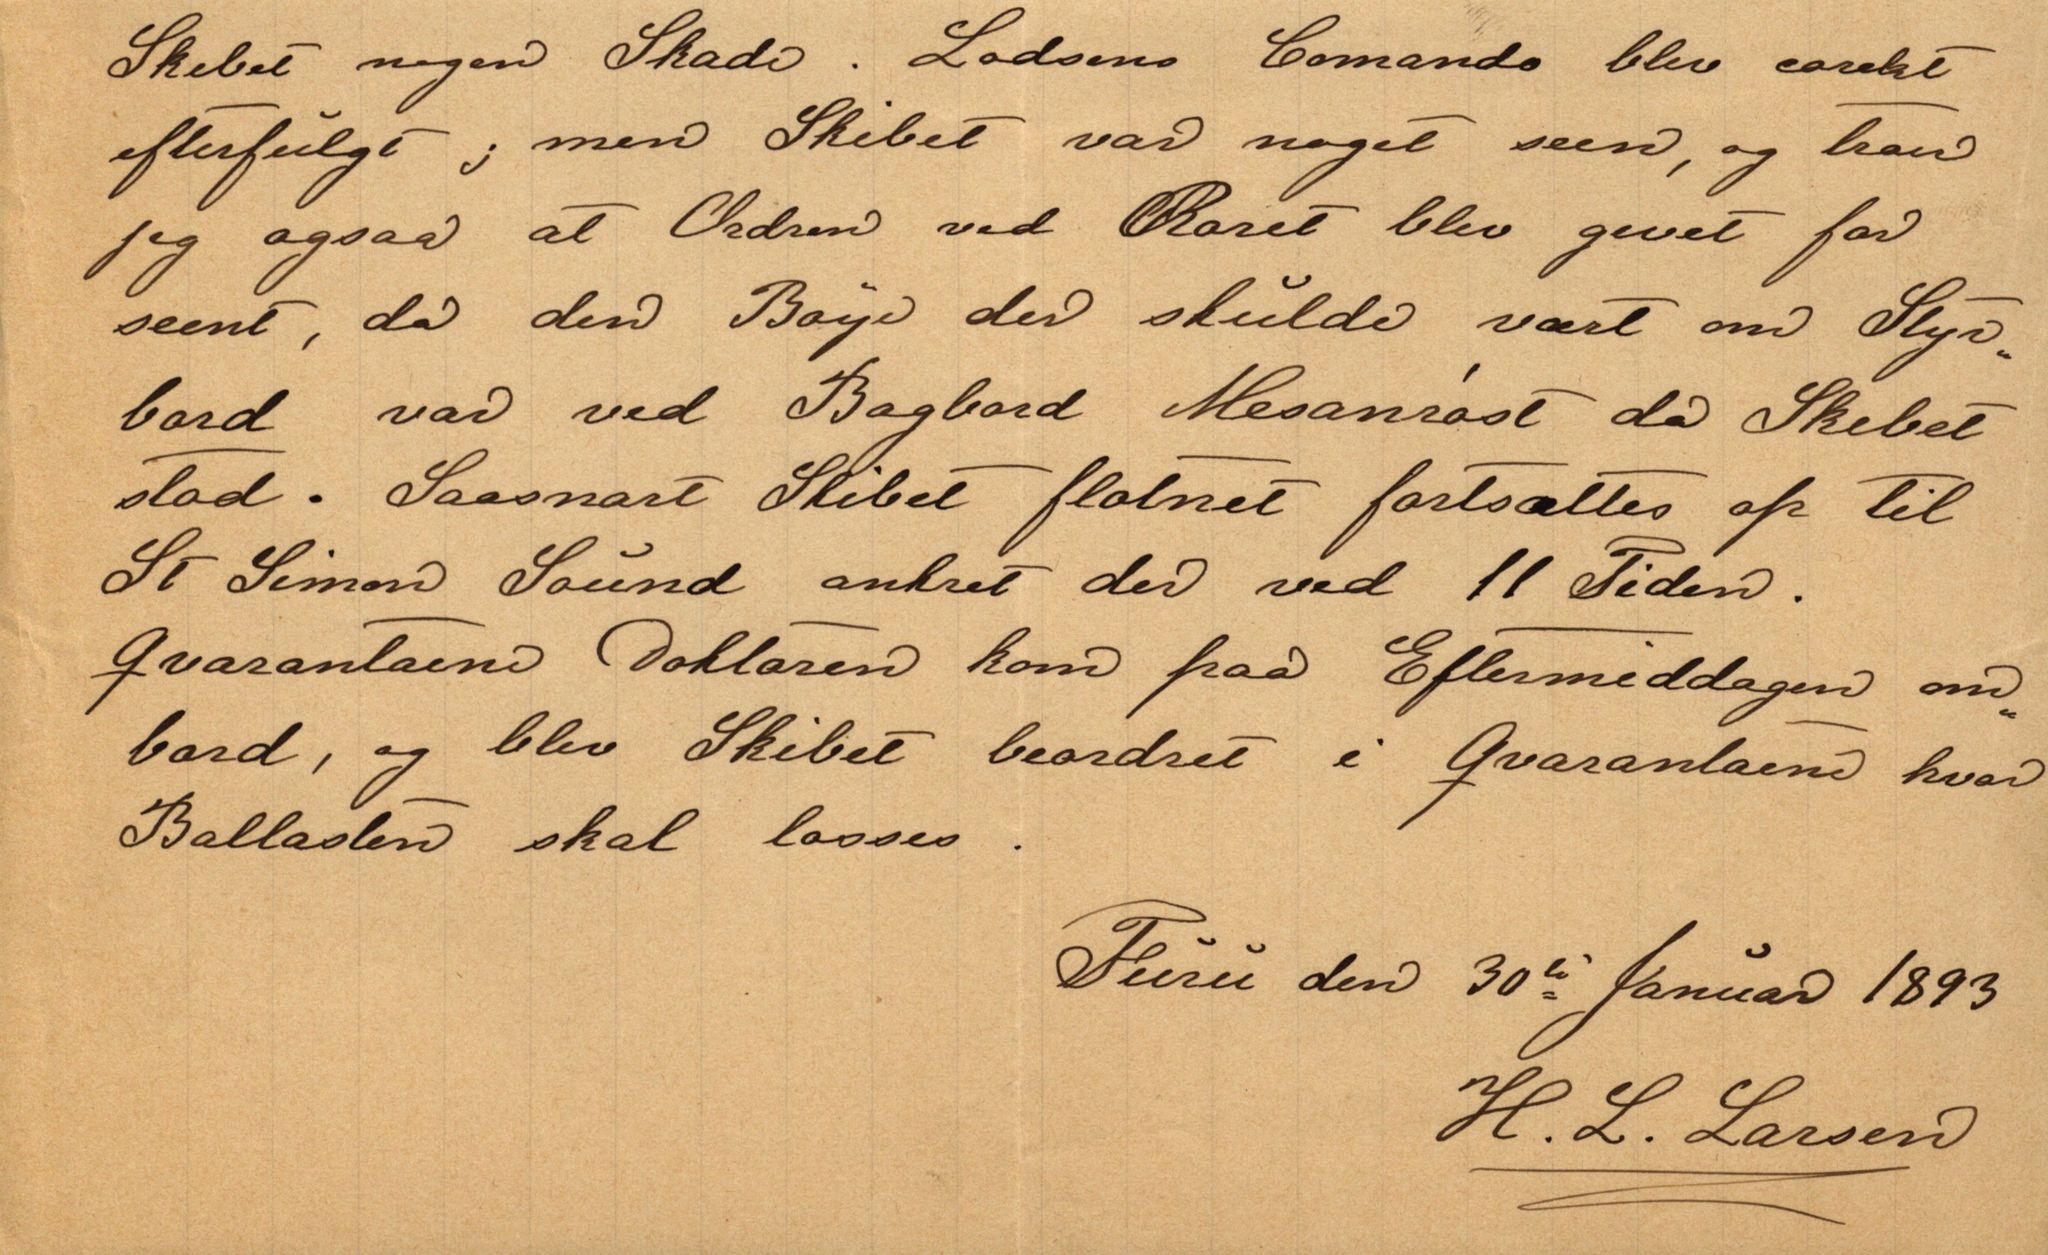 Skibet nogen Skade. Lodsens Comando blev corekt
efterfulgt; men Skibet var noget seen, og troer
jeg ogsaa at Ordren ved Roret blev givet for
seent, da den Böye der skulde vært om Styr„
bord var ved Bagbord Mesanröst da Skibet
stod. Saasnart Skibet flotnet fortsættes op til
St Simon Sound ankret der ved 11 Tiden.
Qvarantaine Doktoren kom paa Eftermiddagen om„
bord, og blev Skibet beordret i Qvarantaine hvor
Ballasten skal losses.
Furu den 30te Januar 1893
H. L. Larsen